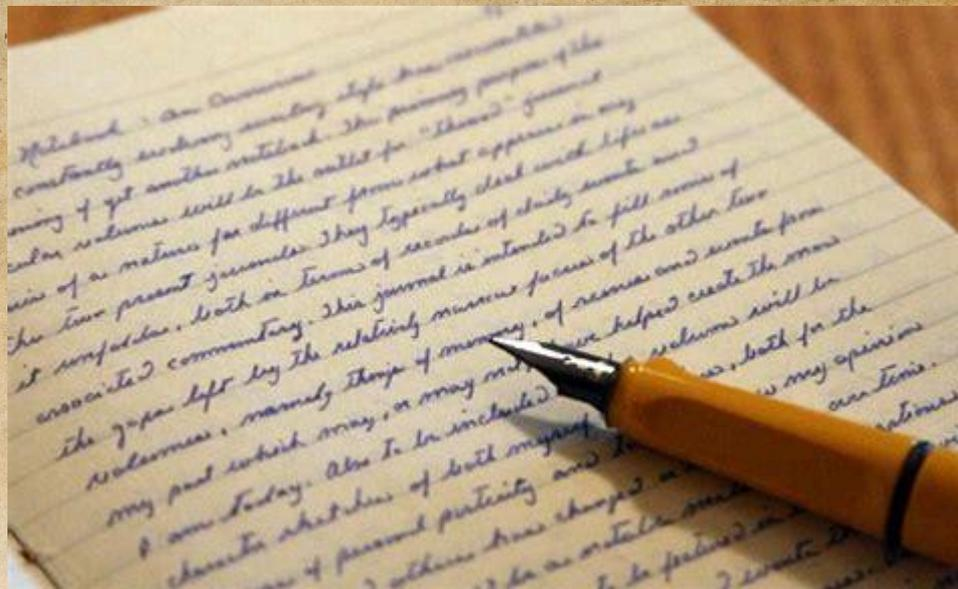 Notebook : An Overview
constantly evolving writing style has
of yet another notebook. The primary purpose of the
volumes will be the outlet for "themed" journal
of a nature far different from what appears in my
two present journals. They typically deal with life as
it unfolds, both in terms of records of daily events and
associated commentary. This journal is intended to fill some of
the gaps left by the relatively narrow focus of the other two
volumes, namely those of memory, of scenes and events from
my past which may, or may not have helped create the man
I am today. Also to be included volume will be
character sketches of both myself and both for the
of personal posterity and to my opinion
others have changed over time.
to be as
to be featured in
events